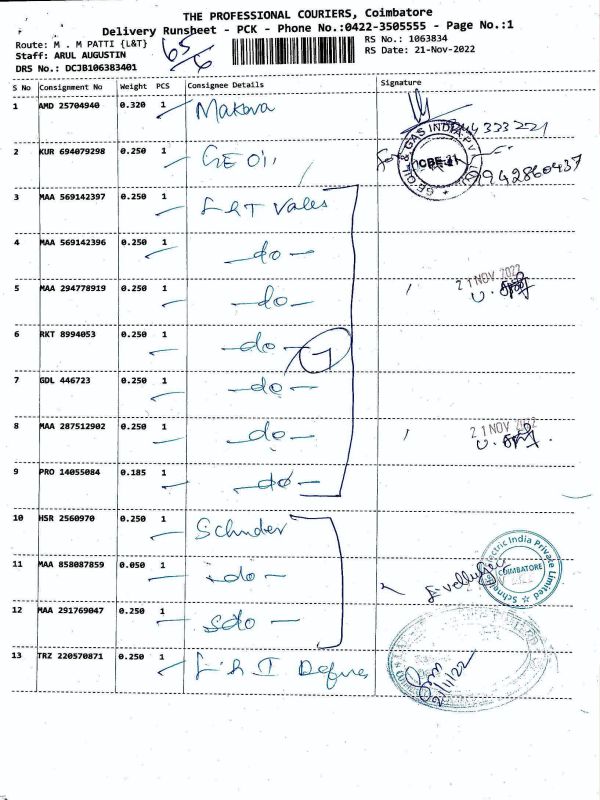 THE PROFESSIONAL COURIERS, Coimbatore
Delivery Runsheet - PCK - Phone No.:0422-3505555 - Page No.:1
Route: M . M PATTI {L&T}
RS No.: 1063834
Staff: ARUL AUGUSTIN
RS Date: 21-Nov-2022
DRS No.: DCJB106383401
65/6
S No Consignment No Weight PCS Consignee Details Signature
1 AMD 25704940 0.320 1 Makava
2 KUR 694079298 0.250 1 GE Oil
GE OIL & GAS INDIA PVT
CBE-21
9942860437
3 MAA 569142397 0.250 1 L&T Valves
4 MAA 569142396 0.250 1 -do-
5 MAA 294778919 0.250 1 -do- 21 NOV 2022
6 RKT 8994053 0.250 1 -do-
7
7 GDL 446723 0.250 1 -do-
8 MAA 287512902 0.250 1 -do- 21 NOV 2022
9 PRO 14055084 0.185 1 -do-
10 HSR 2560970 0.250 1
11 MAA 858087859 0.050 1 -do-
Electric India Private Limited
COIMBATORE
12 MAA 291769047 0.250 1 -do-
13 TRZ 220570871 0.250 1 L & T
21/11/22